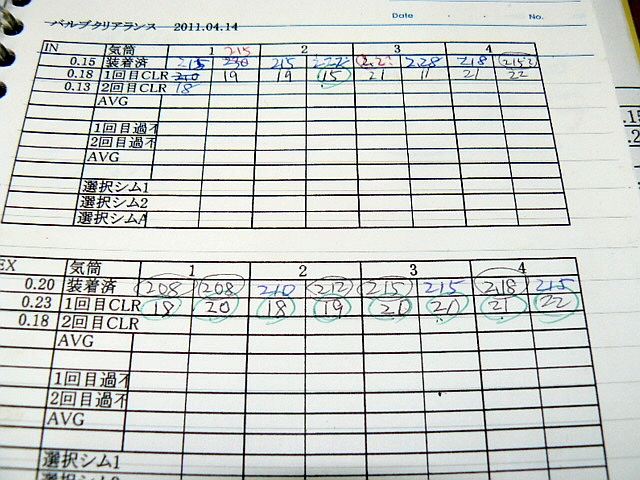 バルブクリアランス 2011.04.14
Date No.
IN 気筒 1 215 2 3 4
0.15 装着済 215 230 215 222 222 228 218 215
0.18 1回目CLR 19 19 15 21 11 21 22
0.13 2回目CLR 18
AVG
1回目過不
2回目過不
AVG
選択シム1
選択シム2
選択シムA
EX 気筒 1 2 3 4
0.20 装着済 208 208 210 212 215 215 218 215
0.23 1回目CLR 18 20 18 19 20 20 21 22
0.18 2回目CLR
AVG
1回目過不
2回目過不
AVG
選択シム1